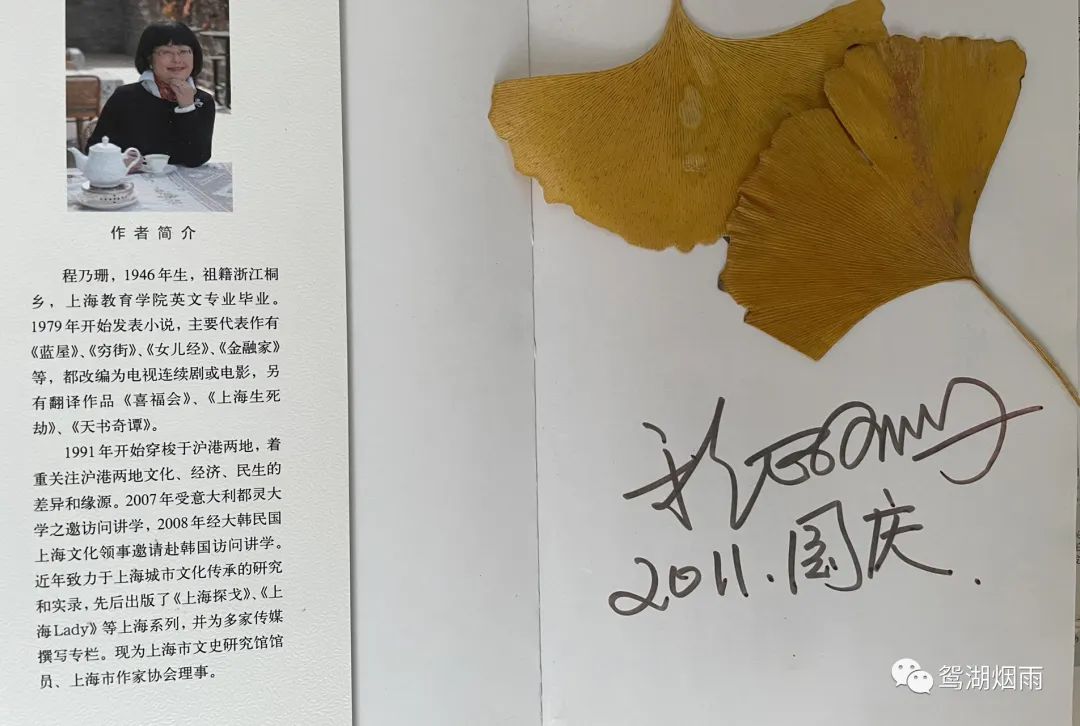 作者简介
程乃珊，1946年生，祖籍浙江桐
乡，上海教育学院英文专业毕业。
1979年开始发表小说，主要代表作有
《蓝屋》、《穷街》、《女儿经》、《金融家》
等，都改编为电视连续剧或电影，另
有翻译作品《喜福会》、《上海生死
劫》、《天书奇谭》。
1991年开始穿梭于沪港两地，着
重关注沪港两地文化、经济、民生的
差异和缘源。2007年受意大利都灵大
学之邀访问讲学，2008年经大韩民国
上海文化领事邀请赴韩国访问讲学。
近年致力于上海城市文化传承的研究
和实录，先后出版了《上海探戈》、《上
海Lady》等上海系列，并为多家传媒
撰写专栏。现为上海市文史研究馆馆
员、上海市作家协会理事。
程乃珊
2011.国庆.
鸳湖烟雨